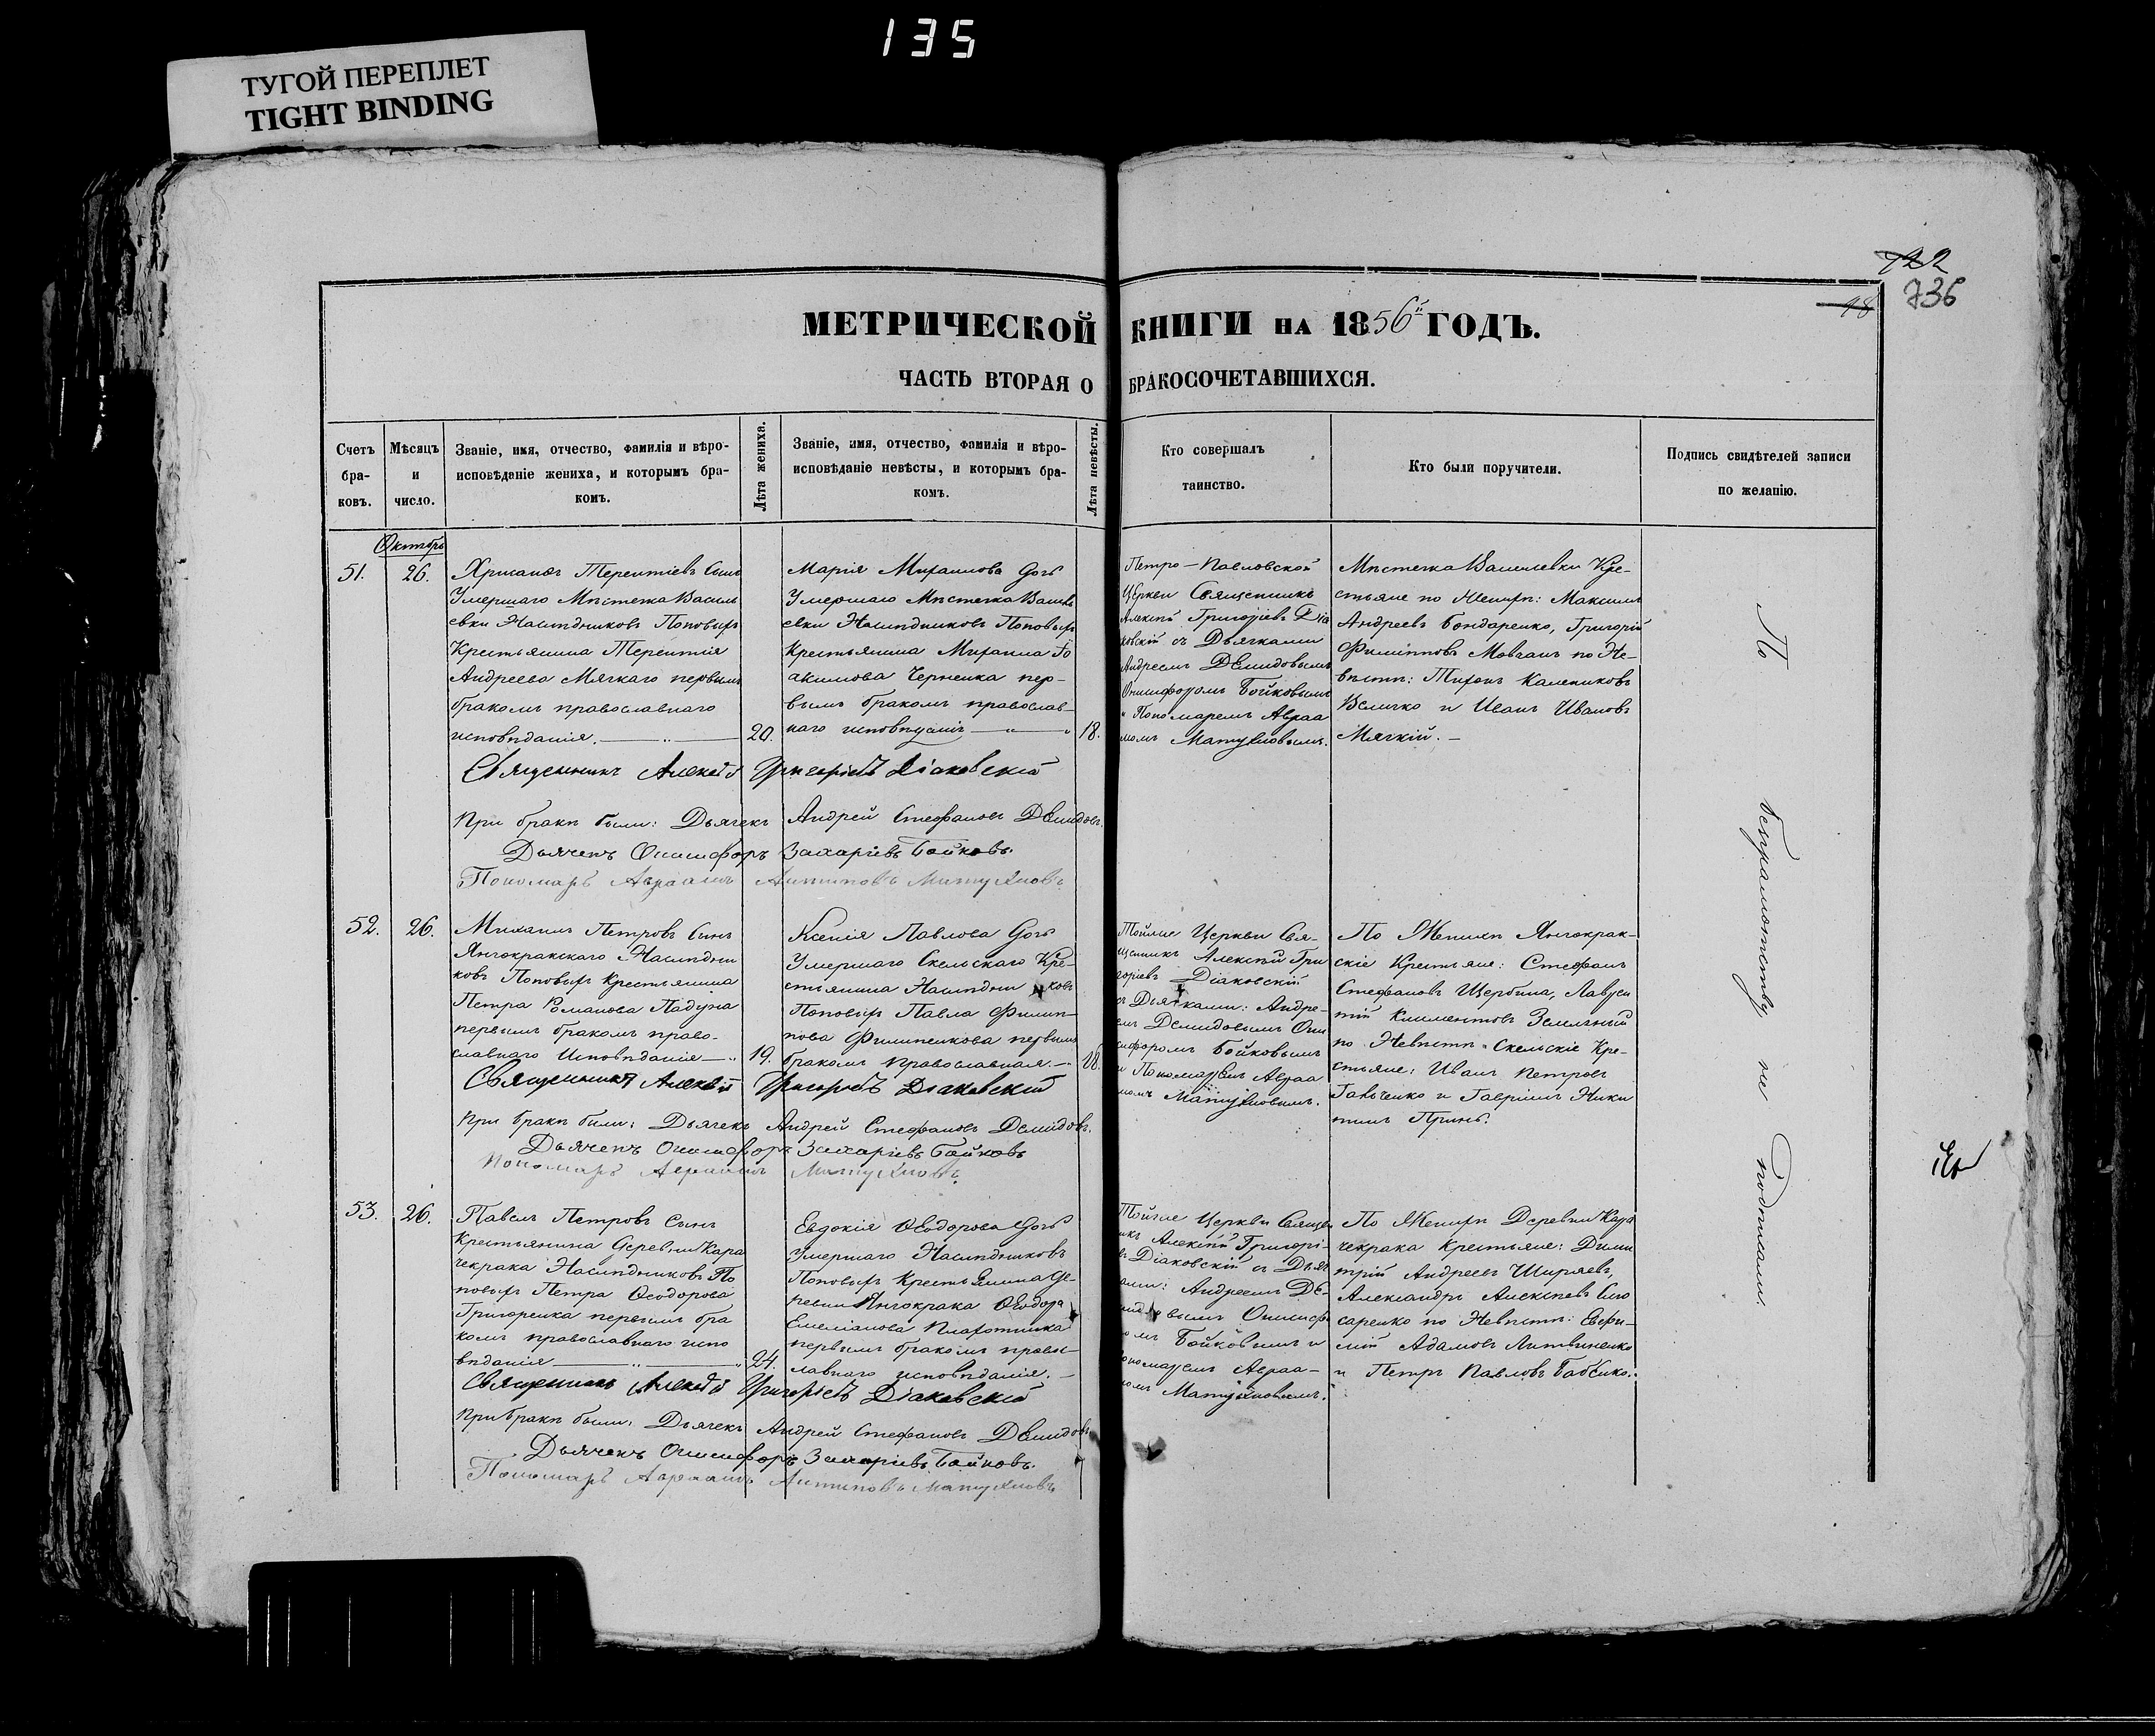 135
ТУГОЙ ПЕРЕПЛЕТ
TIGHT BINDING
722
736
18
МЕТРИЧЕСКОЙ КНИГИ НА 1856й ГОДЪ.
ЧАСТЬ ВТОРАЯ О БРАКОСОЧЕТАВШИХСЯ.
Счетъ
бра-
ковъ.
Мѣсяцъ
и
число.
Званіе, имя, отчество, фамилія и вѣро-
исповѣданіе жениха, и которымъ бра-
комъ.
Лѣта жениха.
Званіе, имя, отчество, фамилія и вѣро-
исповѣданіе невѣсты, и которымъ бра-
комъ.
Лѣта невѣсты.
Кто совершалъ
таинство.
Кто были поручители.
Подпись свидѣтелей записи
по желанію.
Октябрь
51.
26.
Хрисанфъ Терентіевъ Сынъ
Умершаго Мѣстечка Василь
евки Наслѣдниковъ Поповыхъ
Крестьянина Терентія
Андреева Мягкаго первымъ
бракомъ православнаго
исповѣданія.
20.
Марія Михаилова Дочь
Умершаго Мѣстечка Василь
евки Наслѣдниковъ Поповыхъ
Крестьянина Михаила Іо
акимова Черненка пер-
вымъ бракомъ православ-
наго исповѣданія
18.
Петро-Павловской
Церкви Священникъ
Алексѣй Григоріевъ Діа
ковскій съ Дьячками
Андреемъ Демидовымъ
Онисифоромъ Бойковымъ
и Пономаремъ Авраа
момъ Матухновымъ.
Мѣстечка Васильевки Кре-
стьяне по Женихѣ: Максимъ
Андреевъ Бондаренко, Григорій
Филипповъ Мовчанъ по Не-
вѣстѣ: Тихонъ Калениковъ
Величко и Иванъ Ивановъ
Мягкій.
Священникъ Алексѣй Григоріевъ Діаковскій
При бракѣ были: Дьячекъ Андрей Стефановъ Демидовъ.
Дьячекъ Онисифоръ Захаріевъ Бойковъ.
Пономарь Авраамъ Антиповъ Матухновъ.
52.
26.
Михаилъ Петровъ Сынъ
Янчокракскаго Наслѣдни
ковъ Поповыхъ Крестьянина
Петра Романова Падуна
первымъ бракомъ право-
славнаго Исповѣданія
19.
Ксенія Павлова Дочь
Умершаго Скельскаго Кре-
стьянина Наслѣдни ковъ
Поповыхъ Павла Филип-
пова Филипенкова первымъ
бракомъ Православная.
18.
Тойже Церкви Свя-
щенникъ Алексѣй Гри
горіевъ Діаковскій
съ Дьячками: Андре-
емъ Демидовымъ Они
сифоромъ Бойковымъ
и Пономаремъ Авраа
момъ Матухновымъ.
По Женихѣ Янчокрак-
скіе Крестьяне: Стефанъ
Стефановъ Щербина, Лаврен
тій Климентовъ Земляный
по Невѣстѣ Скельскіе Кре-
стьяне: Иванъ Петровъ
Ганченко и Гавріилъ Ники
тинъ Принь.
Священникъ Алексѣй Григоріевъ Діаковскій
При бракѣ были: Дьячекъ Андрей Стефановъ Демидовъ.
Дьячекъ Онисифоръ Захаріевъ Бойковъ
Пономарь Авраамъ Матухновъ.
53.
26.
Павелъ Петровъ Сынъ
Крестьянина Деревни Кара
чекрака Наслѣдниковъ По
повыхъ Петра Ѳеодорова
Григоренка первымъ бра
комъ православнаго испо
вѣданія
24.
Евдокія Ѳеодорова Дочь
Умершаго Наслѣдниковъ
Поповыхъ Крестьянина Де-
ревни Янчокрака Ѳеодора
Емеліанова Плахотника
первымъ бракомъ правос-
лавнаго исповѣданія.
Тойже Церкви Священ
никъ Алексѣй Григорі-
евъ Діаковскій съ Дьяч
ками: Андреемъ Де-
мидовымъ Онисифо
ромъ Бойковымъ и
Пономаремъ Авраа-
момъ Матухновымъ.
По Женихѣ Деревни Кара
чекрака Крестьяне: Дими
трій Андреевъ Ширяевъ,
Александръ Алексѣевъ Слю
саренко по Невѣстѣ: Евфи-
мій Адамовъ Литвиненко
и Петръ Павловъ Бабенко.
Священникъ Алексѣй Григоріевъ Діаковскій
При бракѣ были: Дьячекъ Андрей Стефановъ Демидовъ
Дьячекъ Онисифоръ Захаріевъ Бойковъ.
Пономарь Авраамъ Антиповъ Матухновъ
По безграмотству не подписали.